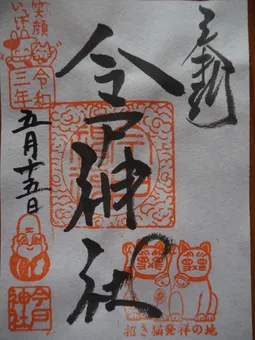 奉拝
今戸神社
笑顔
いっぱい
令和
三年
五月十五日
今戸
神社
招き猫発祥の地